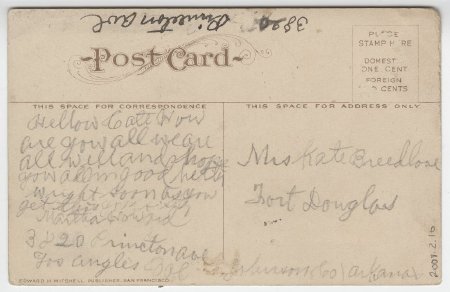 3820
Princeton ave
Post Card
PLACE
STAMP HERE
DOMESTIC
ONE CENT
FOREIGN
CENTS
THIS SPACE FOR CORRESPONDENCE
Hellow Cate How
are you all we are
all will and hope
you all in good helth
wright soon as you
get this
Martha Howard
3820 Princton ave
Los Angles Cal
THIS SPACE FOR ADDRESS ONLY
Mrs Kate Breedlove
Fort Douglas
Johnson Co Arkansas
EDWARD H. MITCHELL, PUBLISHER, SAN FRANCISCO.
2009.2.16